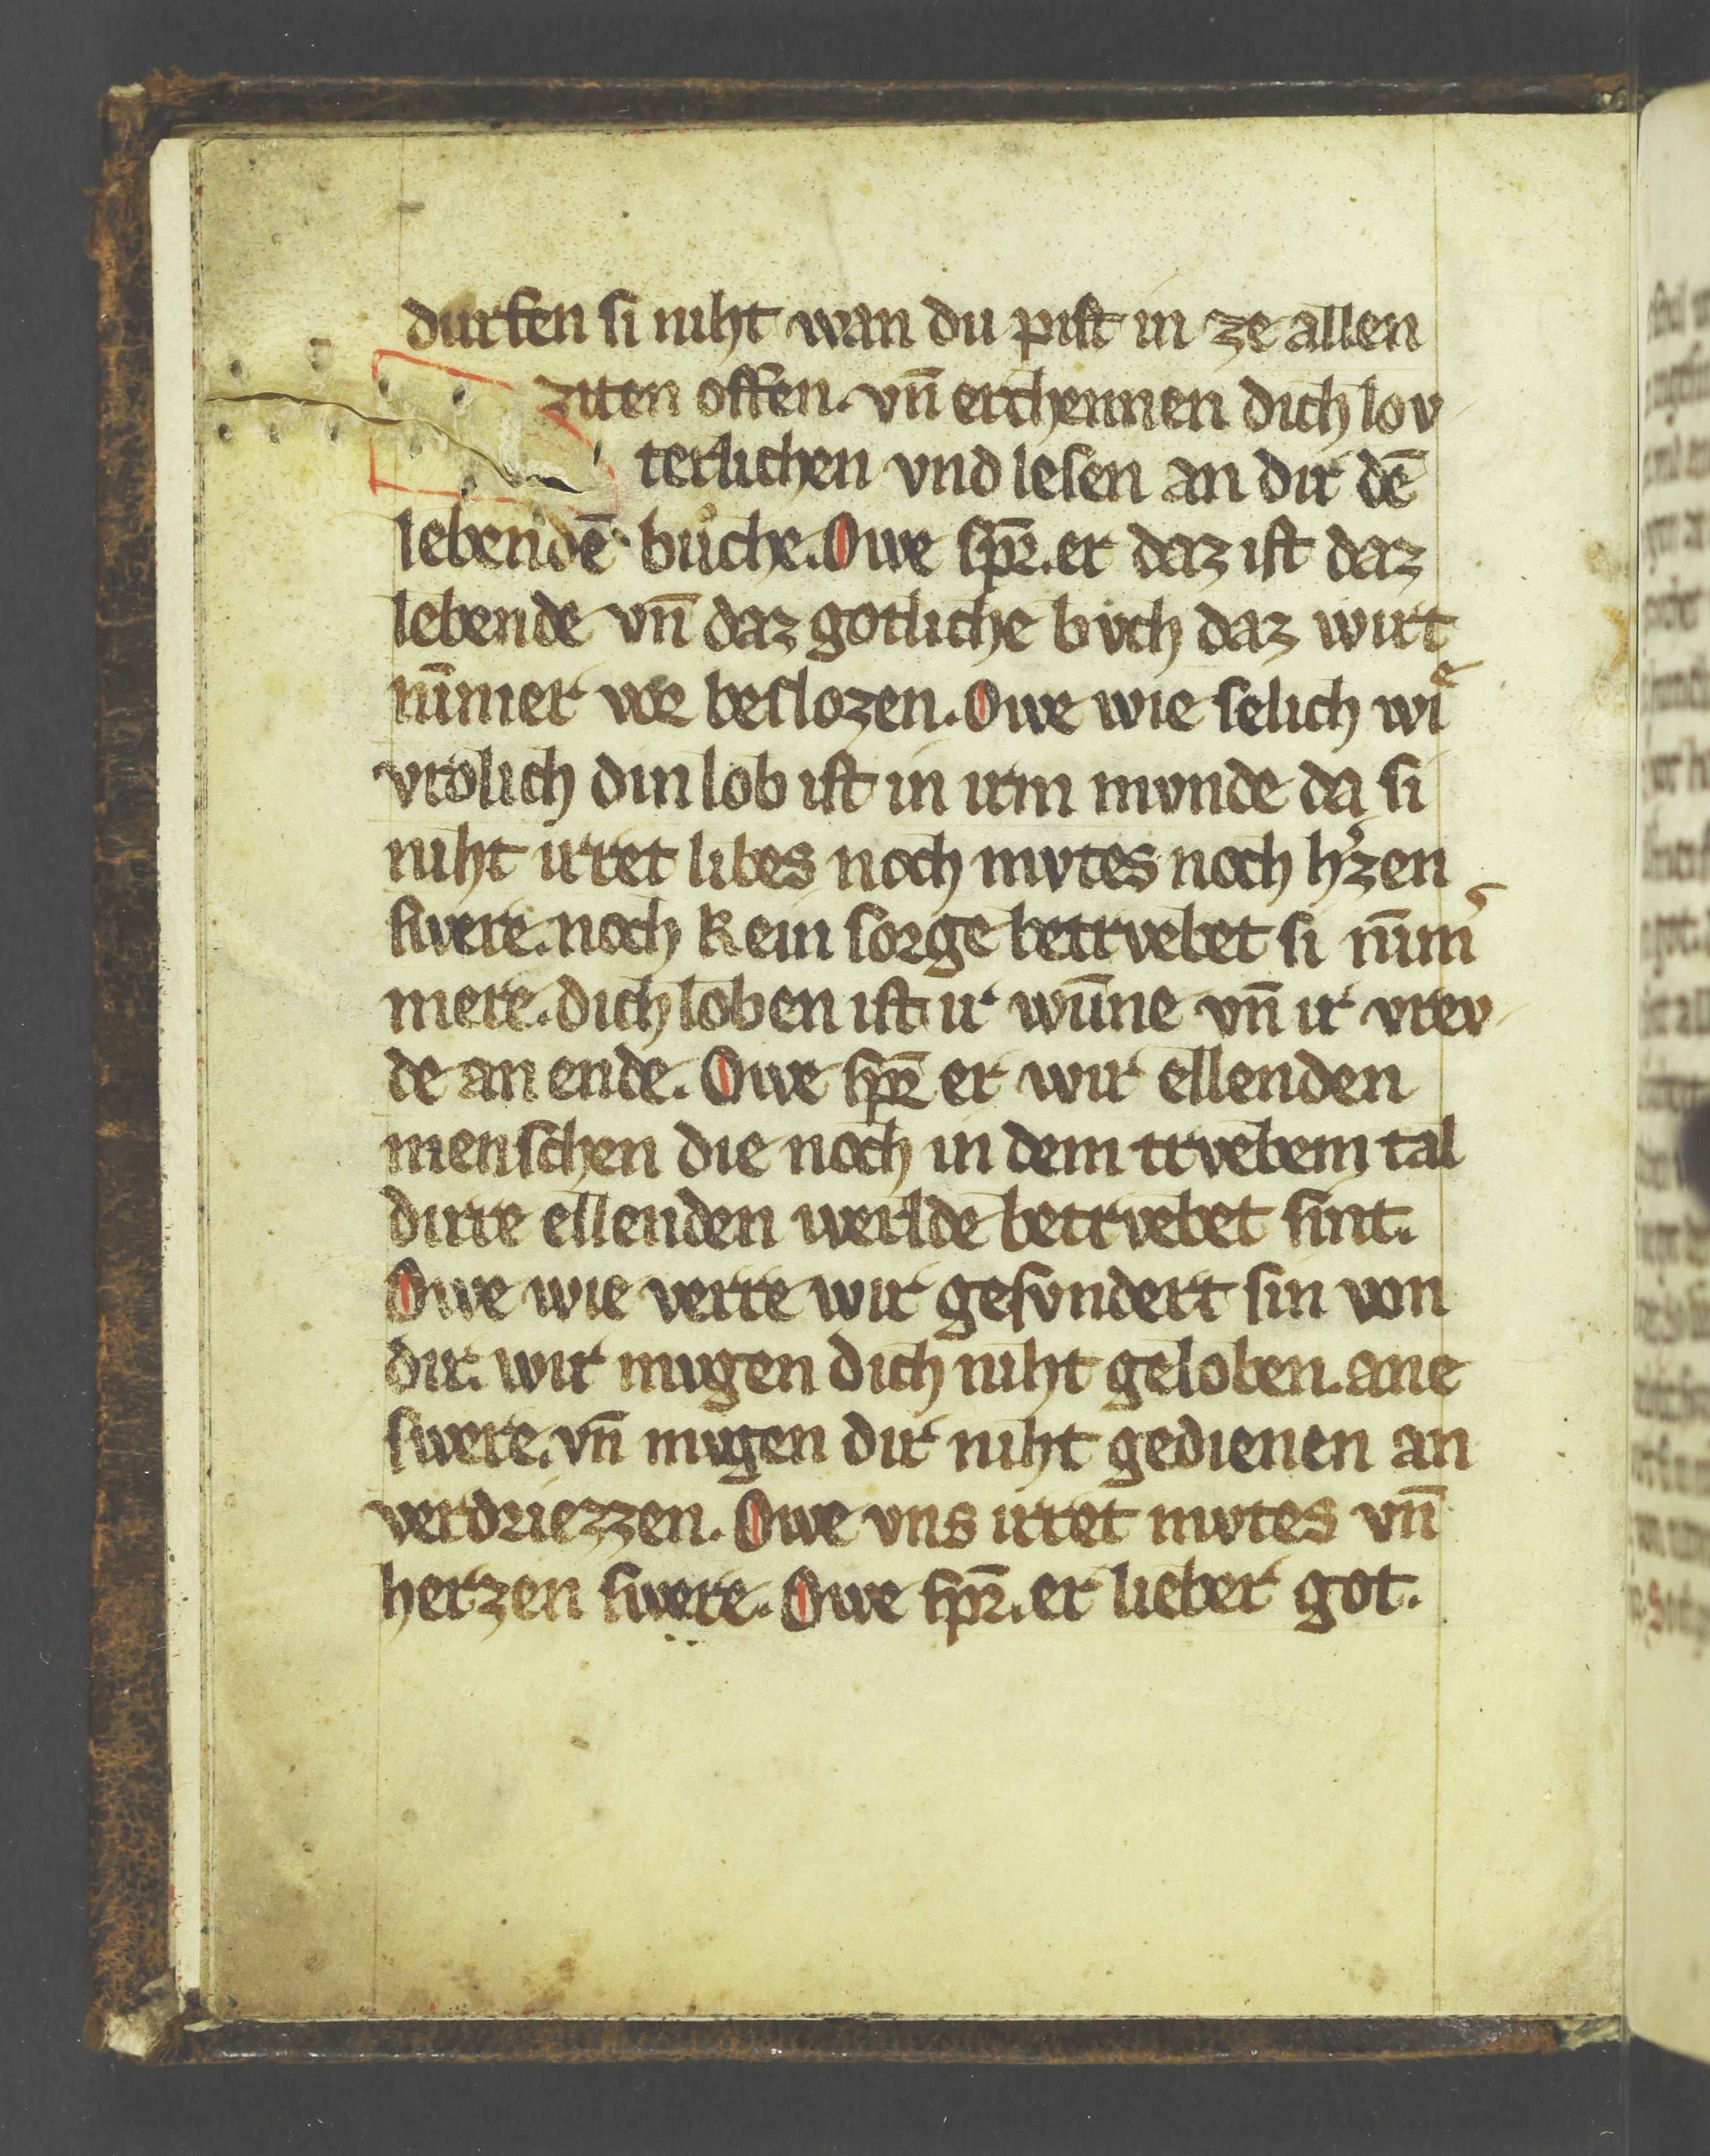 durfen si niht wan du pist in ze allen
ziten offen. vn̄ erchennen dich lov
terlichen vnd lesen an dir dē
lebendē bůche. Owe spͬ. er daz ist daz
lebende vn̄ daz gotliche bvch daz wirt
nīmer we beslozen. Owe wie selich wiͤ
vrolich din lob ist in irm mvnde da si
niht irret libes noch mvtes noch h͛zen
swere. noch kein sorge betrvebet si nīm͛
mere. dich loben ist ir wūne vn̄ ir vrev
de an ende. Owe spͬ er wir ellenden
menschen die noch in dem trvebem tal
dirre ellenden werlde betrvebet sint.
Owe wie verre wir gesvndert sin von
dir. wir mugen dich niht geloben. ane
swere. vn̄ mugen dir niht gedienen an
verdriezzen. Owe vns irret mvtes vn̄
herzen swere. Owe spͬ. er lieber got.